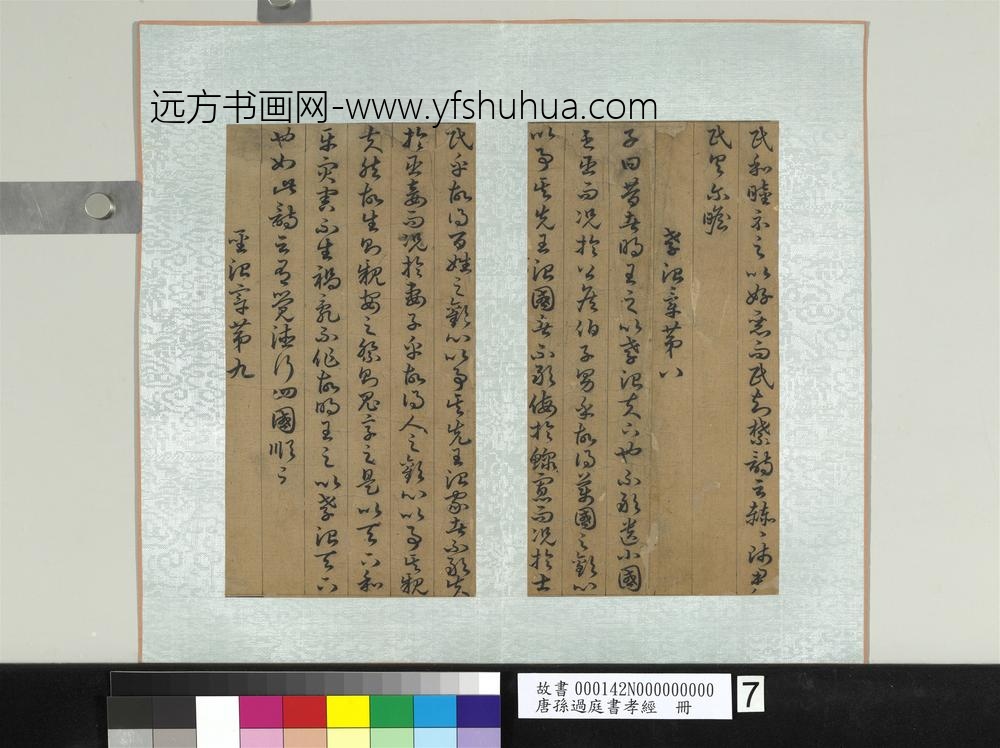 远方书画网-www.yfshuhua.com
民和睦示之以好惡而民知禁詩云赫〻師尹
民具尔瞻
孝治章第八
子曰昔者明王之以孝治天下也不敢遺小國
之臣而況於公侯伯子男乎故得萬國之歡心
以事其先王治國者不敢侮於鰥寡而況於士
民乎故得百姓之歡心以事其先王治家者不敢失
於臣妾而況於妻子乎故得人之歡心以事其親
夫然故生則親安之祭則鬼享之是以天下和
平災害不生禍亂不作故明王之以孝治天下
也如此詩云有覺德行四國順之
聖治章第九
故書 000142N000000000
唐孫過庭書孝經 冊
7